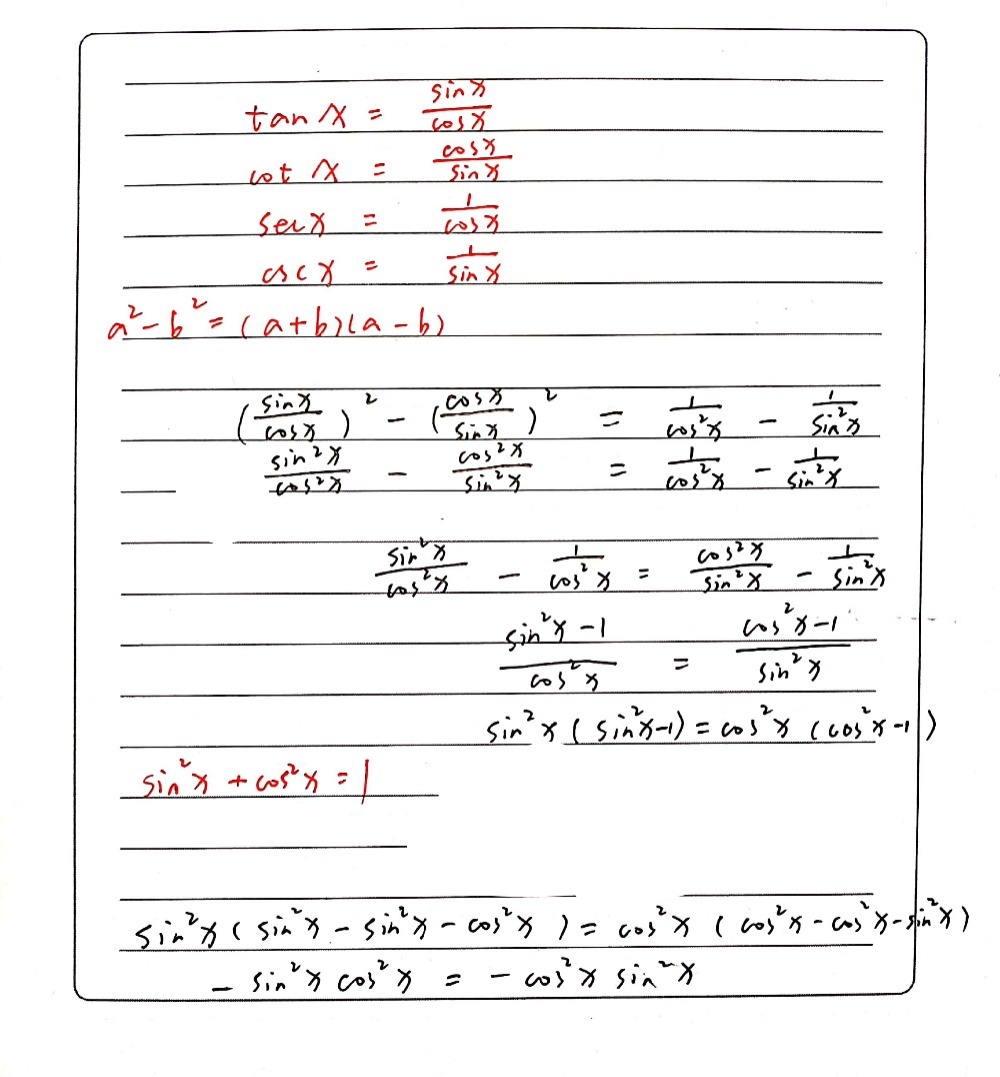 tan x = sin x / cos x
cot x = cos x / sin x
sec x = 1 / cos x
csc x = 1 / sin x
a² - b² = (a+b)(a-b)
(sin x / cos x)² - (cos x / sin x)² = 1 / cos²x - 1 / sin²x
sin²x / cos²x - cos²x / sin²x = 1 / cos²x - 1 / sin²x
sin²x / cos²x - 1 / cos²x = cos²x / sin²x - 1 / sin²x
(sin²x - 1) / cos²x = (cos²x - 1) / sin²x
sin²x (sin²x - 1) = cos²x (cos²x - 1)
sin²x + cos²x = 1
sin²x (sin²x - sin²x - cos²x) = cos²x (cos²x - cos²x - sin²x)
- sin²x cos²x = - cos²x sin²x